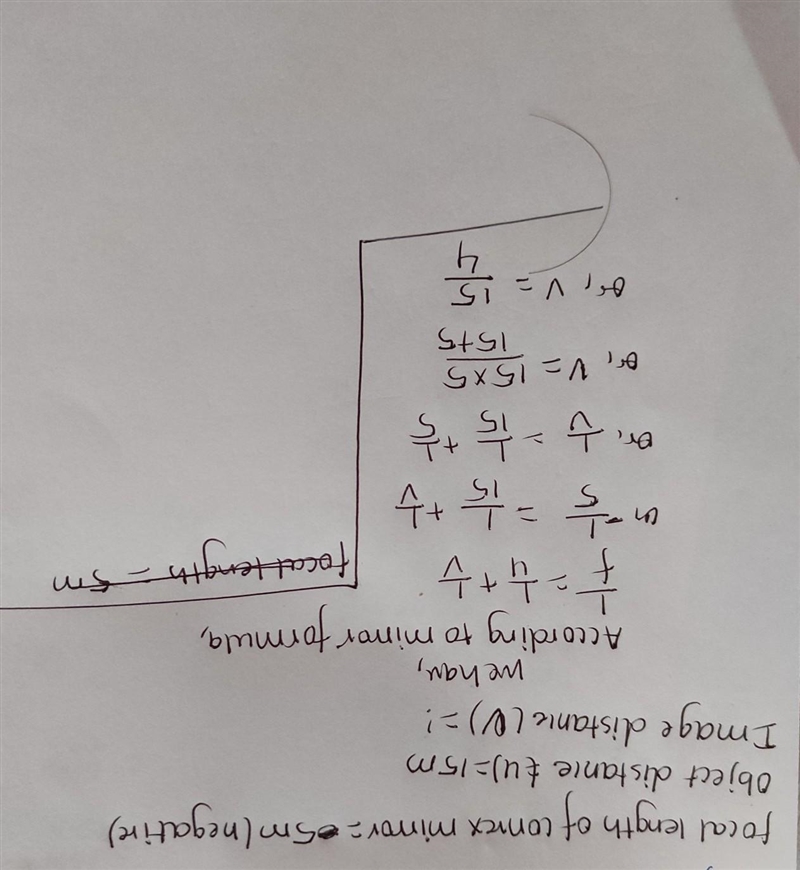 focal length of convex mirror = -5m (negative)
Object distance (u) = 15m
Image distance (v) = ?
we have,
According to mirror formula,
1/f = 1/u + 1/v
or, -1/5 = 1/15 + 1/v
or, 1/v = 1/15 + 1/5
or, v = 15×5/15+5
or, v = 15/4
focal length = 5m